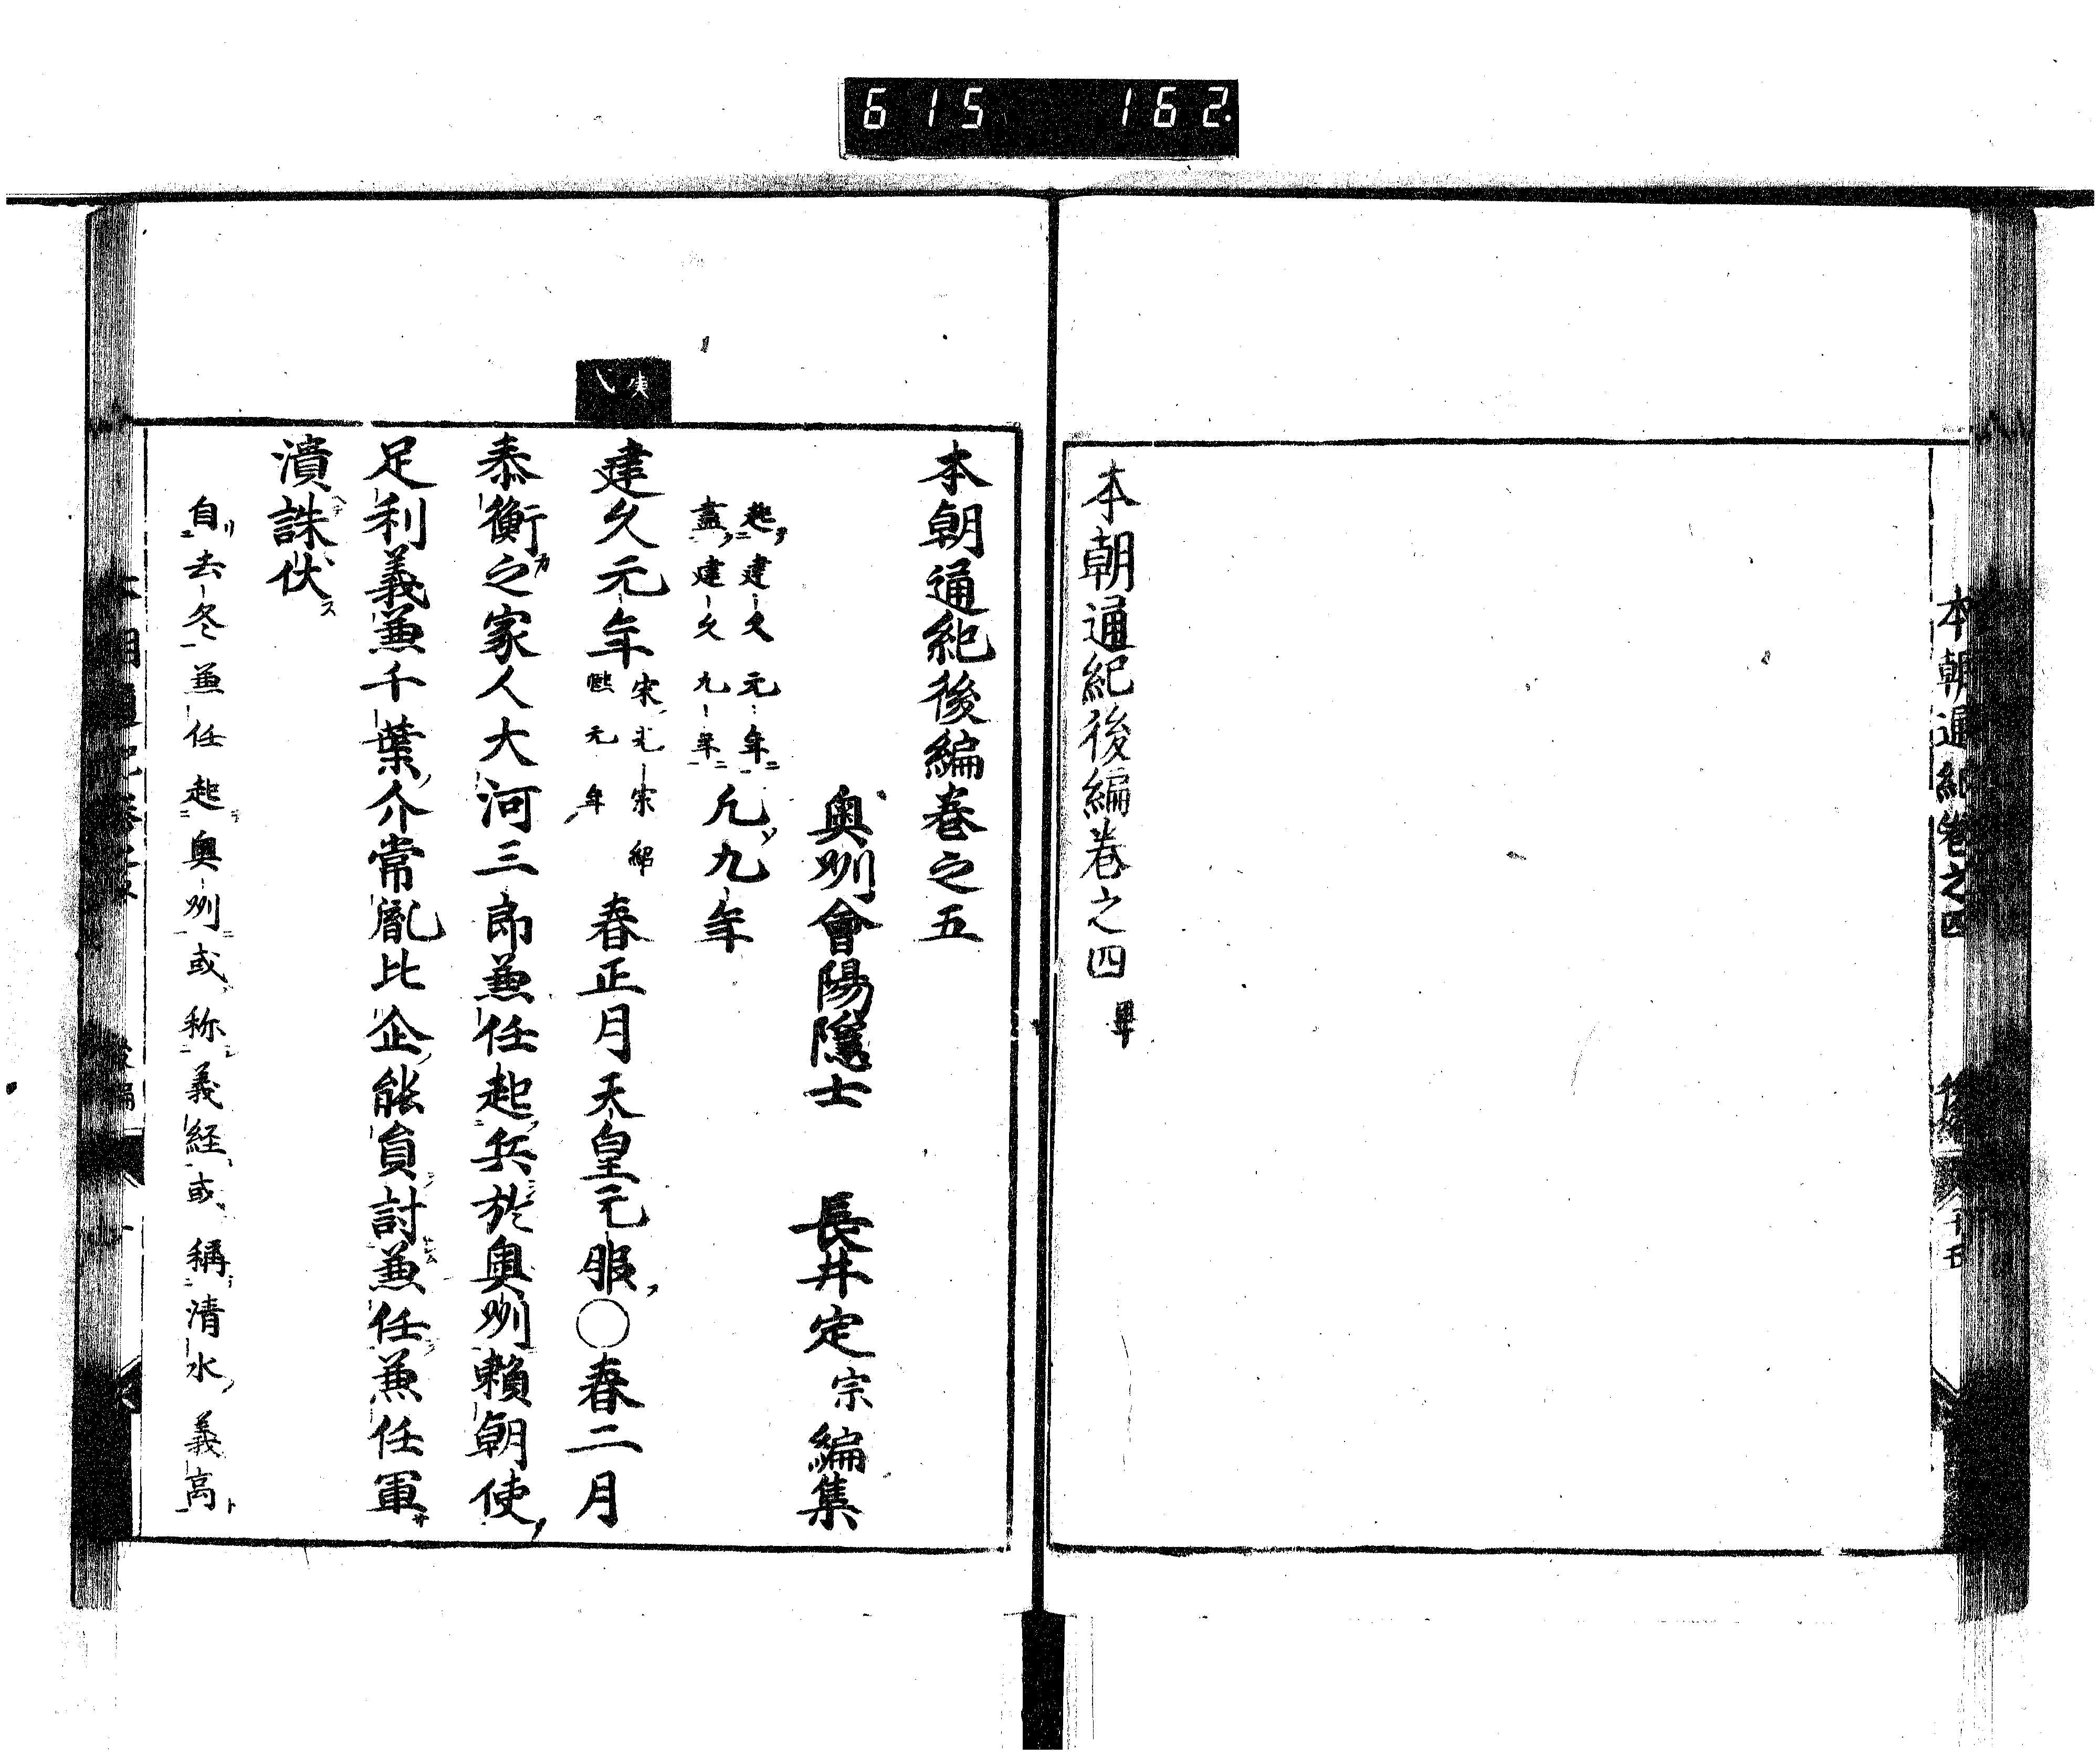 615 162
本朝通紀卷之四
本朝通紀後編卷之四 畢
本朝通紀後編卷之五
奥州會陽隱士 長井定宗編集
起建久元年
盡建久九年
凢九年
建久元年
宋光宗紹
熙元年
春正月天皇元服〇春二月
泰衡之家人大河三郎兼任起兵於奥州賴朝使
足利義兼千葉介常胤比企能員討兼任兼任軍
潰誅伏
自去冬兼任起奥州或称義経或稱清水義高